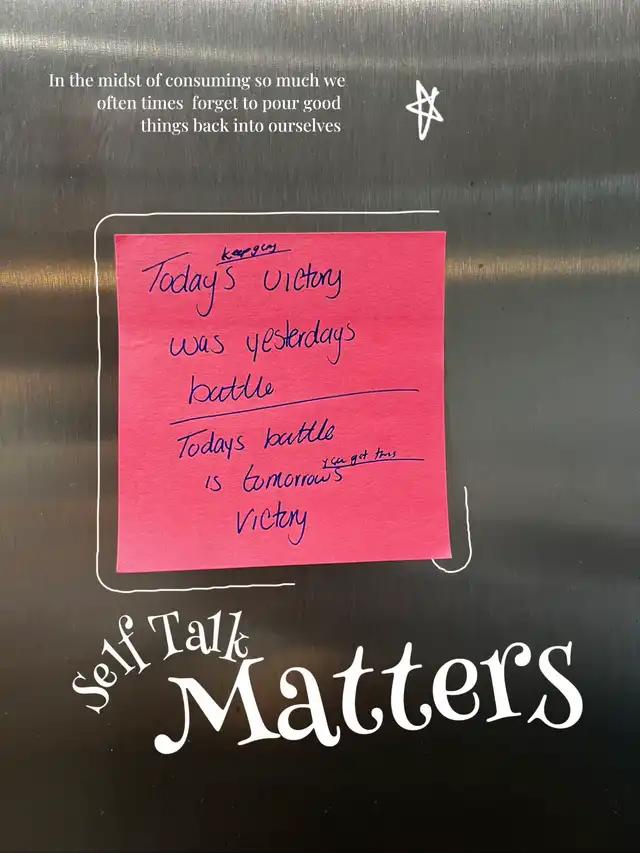 In the midst of consuming so much we
often times forget to pour good
things back into ourselves
keep going
Today's victory
was yesterdays
battle
Todays battle
you got this
is tomorrows
victory
Self Talk
Matters